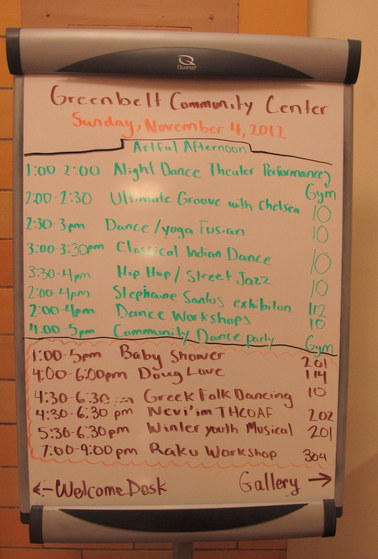 Quartet
Greenbelt Community Center
Sunday, November 4, 2012
Artful Afternoon
1:00 2:00 Alight Dance Theater Performances Gym
2:00-2:30 Ultimate Groove with Chelsea 10
2:30-3pm Dance/yoga Fusian 10
3:00-3:30pm Classical Indian Dance 10
3:30-4pm Hip Hop/Street Jazz 10
2:00-4pm Stephaine Santos exhibiton 112
2:00-4pm Dance Workshops 10
4:00-5pm Community Dance party Gym
1:00-5pm Baby Shower 201
4:00-6:00pm Doug Love 114
4:30-6:30 Greek Folk Dancing 10
4:30-6:30 pm Nevi'im THEOAF 202
5:30-6:30pm Winter youth Musical 201
7:00-9:00pm Raku Workshop 304
←-Welcome Desk Gallery →